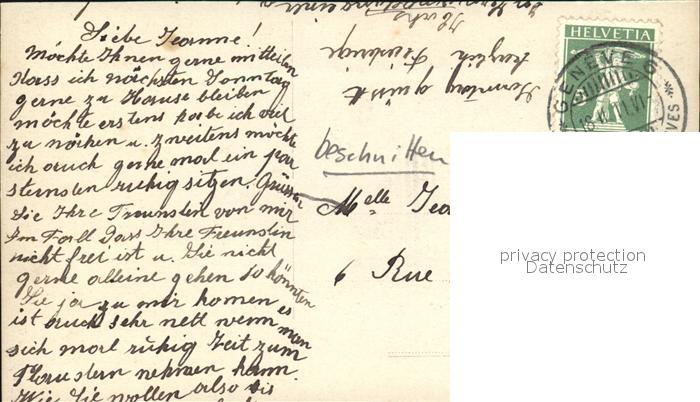 Liebe Jeanne!
Möchte Ihnen gerne mitteilen
dass ich nächsten Sonntag
gerne zu Hause bleiben
möchte erstens habe ich viel
zu nähen u. zweitens möchte
ich auch gerne mal ein par
stunden ruhig sitzen. Grüssen
Sie Ihre Freundin von mir
Im Fall dass Ihre Freundin
nicht frei ist u. Sie nicht
gerne alleine gehen so könnten
Sie ja zu mir komen es
ist auch sehr nett wenn man
sich mal ruhig Zeit zum
Plaudern nehmen kann.
Wie Sie wollen also bis
Sonntag grüsst
herzlich
HELVETIA
GENÈVE 6
beschnitten
Melle Jea
6 Rue
privacy protection
Datenschutz